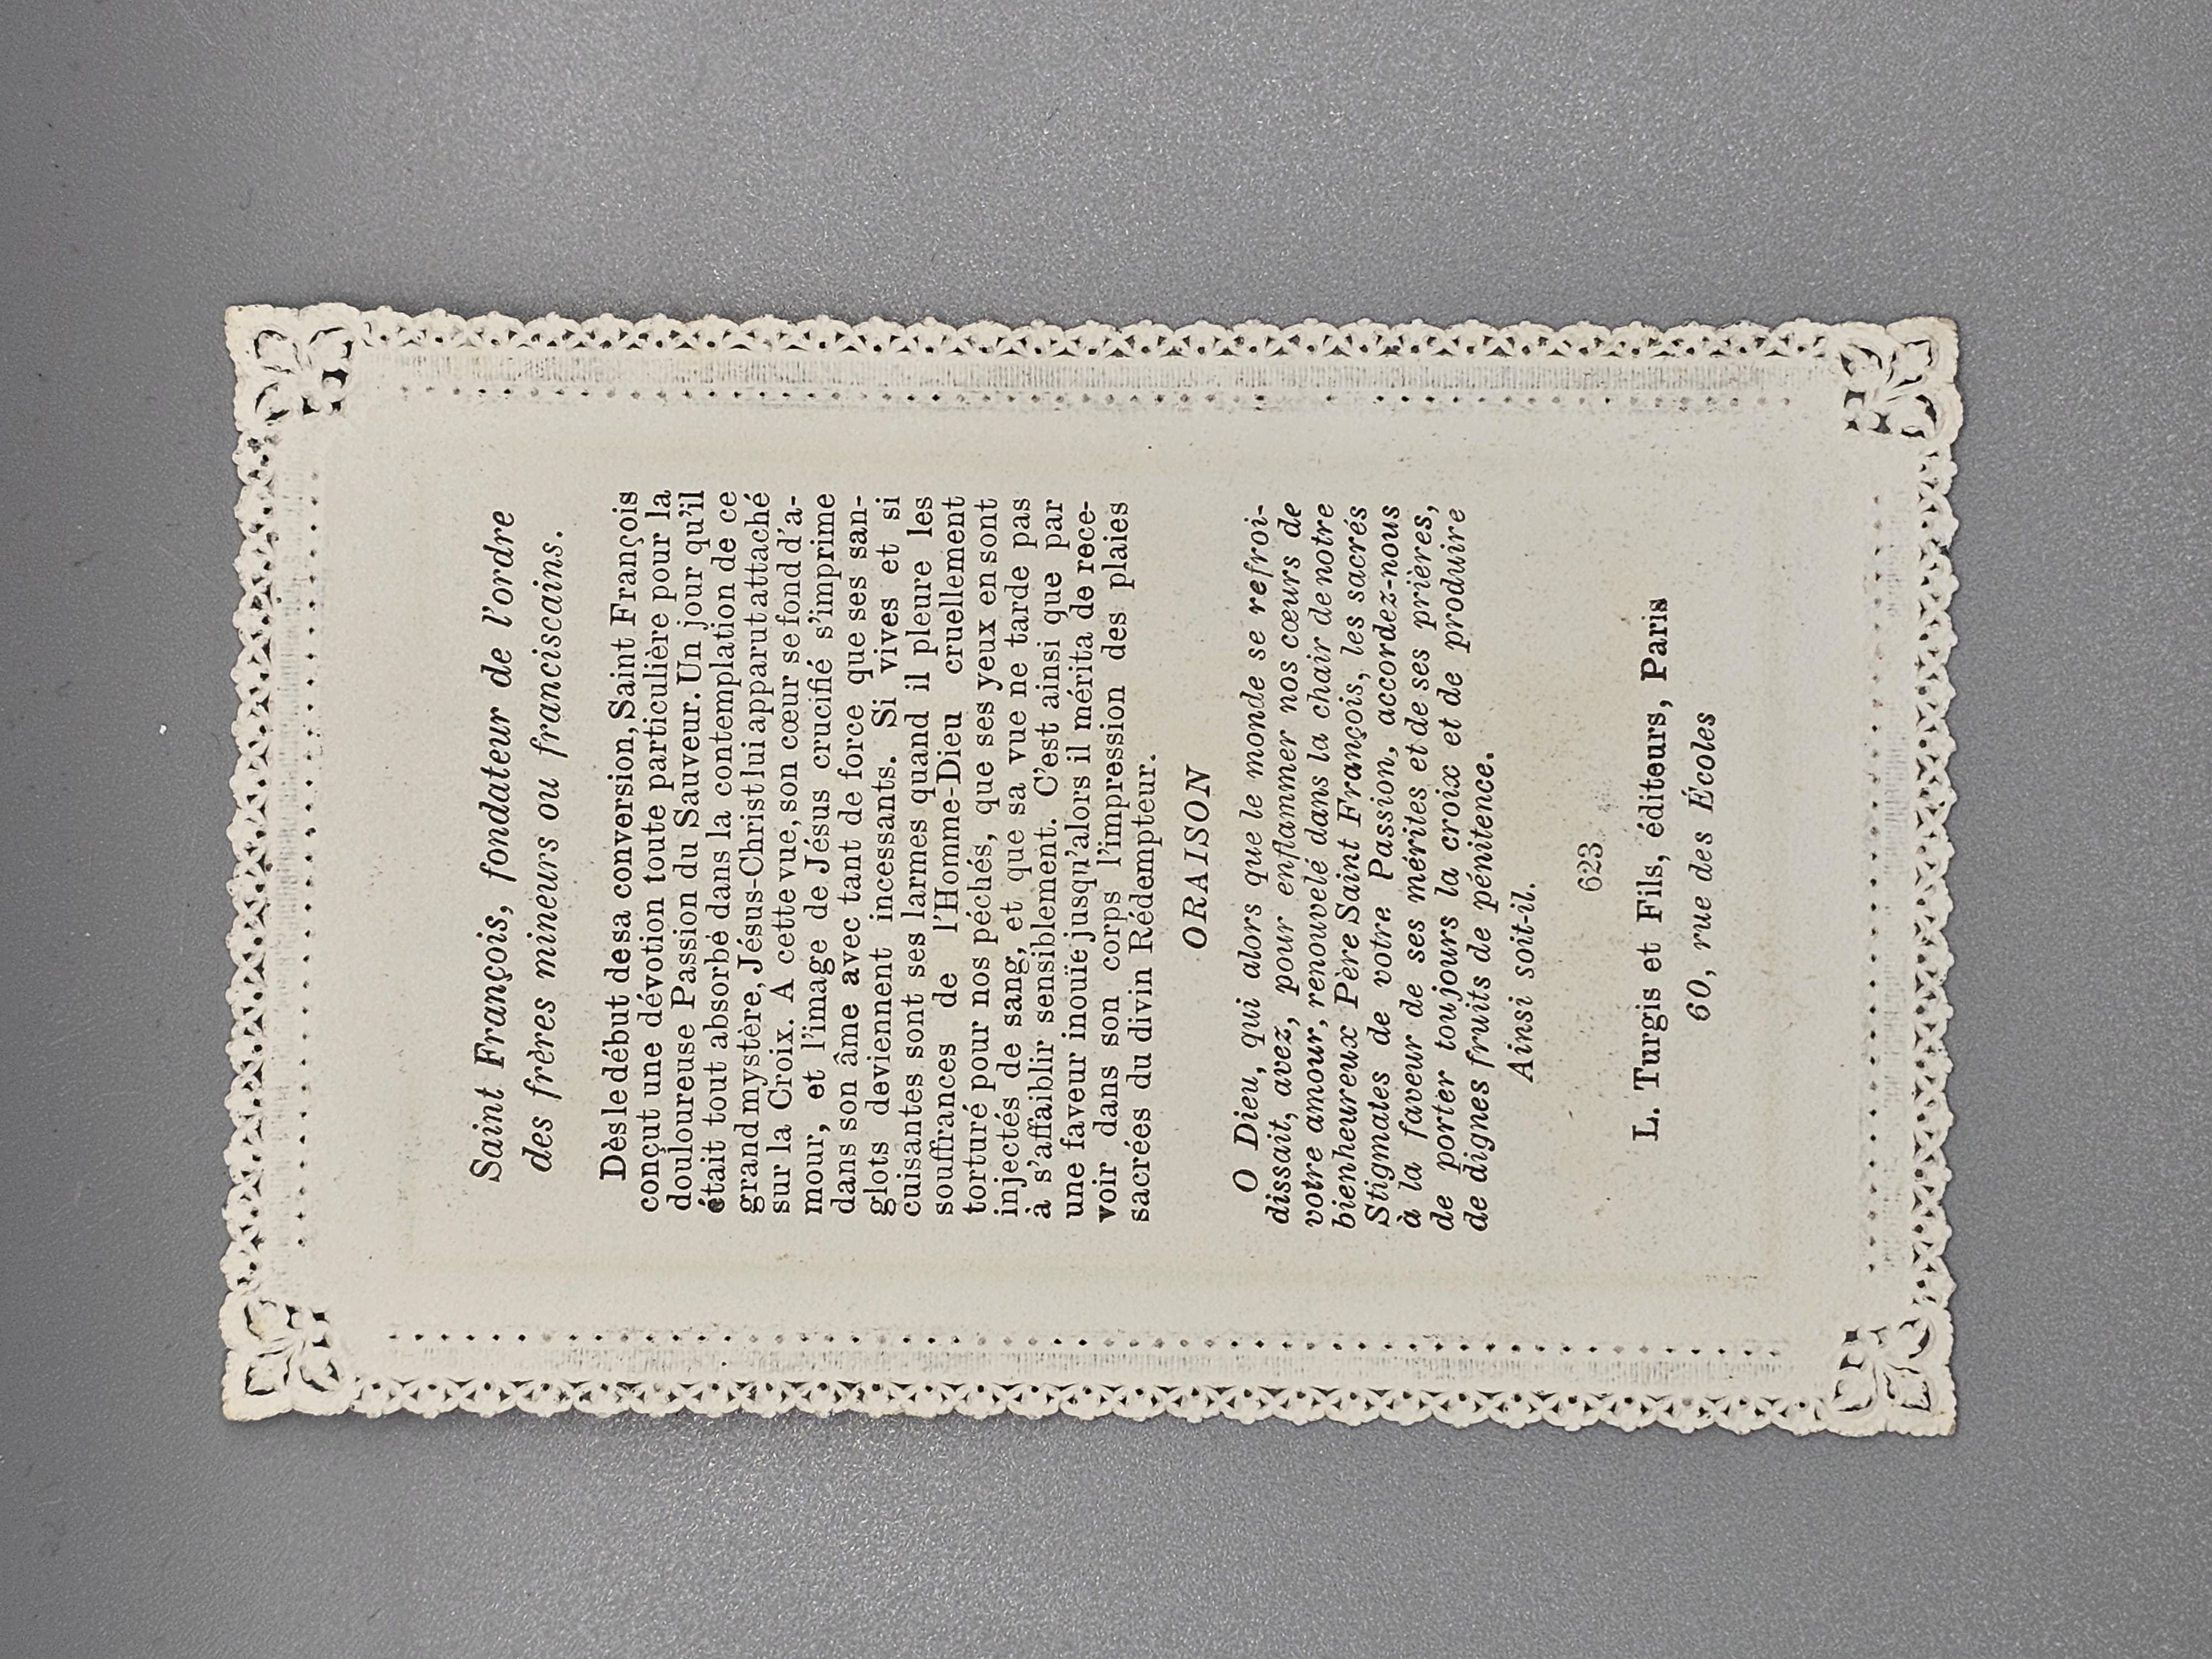 Saint François, fondateur de l'ordre
des frères mineurs ou franciscains.
Dès le début de sa conversion, Saint François
conçut une dévotion toute particulière pour la
douloureuse Passion du Sauveur. Un jour qu'il
était tout absorbé dans la contemplation de ce
grand mystère, Jésus-Christ lui apparut attaché
sur la Croix. A cette vue, son cœur se fond d'a-
mour, et l'image de Jésus crucifié s'imprime
dans son âme avec tant de force que ses san-
glots deviennent incessants. Si vives et si
cuisantes sont ses larmes quand il pleure les
souffrances de l'Homme-Dieu cruellement
torturé pour nos péchés, que ses yeux en sont
injectés de sang, et que sa vue ne tarde pas
à s'affaiblir sensiblement. C'est ainsi que par
une faveur inouïe jusqu'alors il mérita de rece-
voir dans son corps l'impression des plaies
sacrées du divin Rédempteur.
ORAISON
O Dieu, qui alors que le monde se refroi-
dissait, avez, pour enflammer nos cœurs de
votre amour, renouvelé dans la chair de notre
bienheureux Père Saint François, les sacrés
Stigmates de votre Passion, accordez-nous
à la faveur de ses mérites et de ses prières,
de porter toujours la croix et de produire
de dignes fruits de pénitence.
Ainsi soit-il.
623.
L. Turgis et Fils, éditeurs, Paris
60, rue des Écoles